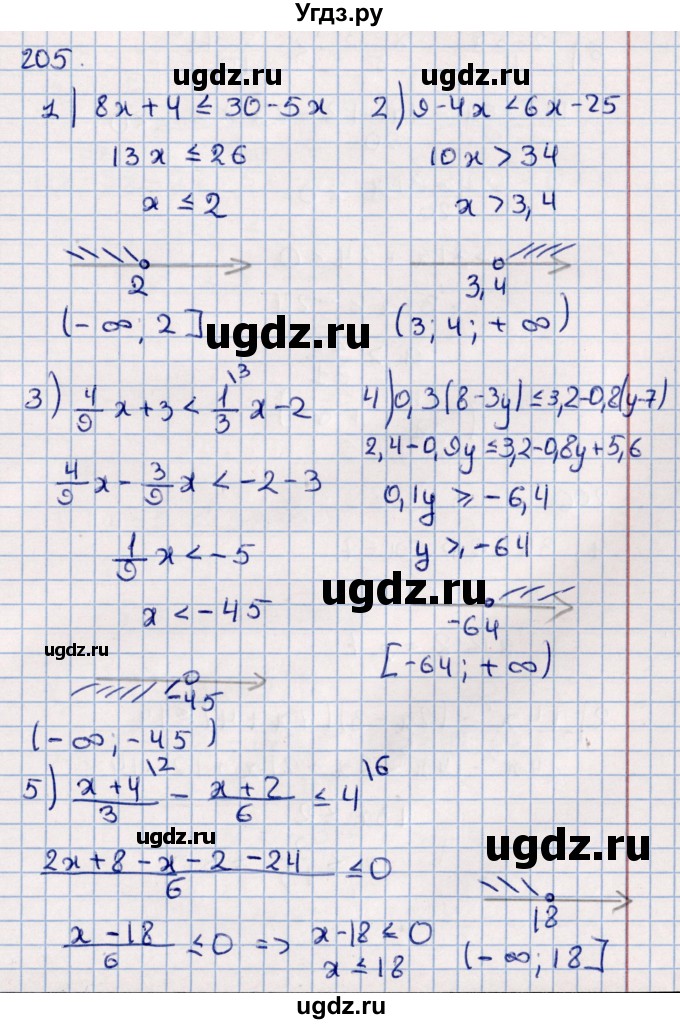 Угдз.ру
205.
1) 8x + 4 ≤ 30 - 5x
13x ≤ 26
x ≤ 2
2
(-∞; 2]
2) 9 - 4x < 6x - 25
10x > 34
x > 3,4
3,4
(3; 4; +∞)
3) 4/9 x + 3 < 1/3 \3 x - 2
4/9 x - 3/9 x < -2 - 3
1/9 x < -5
x < -45
-45
(-∞; -45)
4) 0,3(8 - 3y) ≤ 3,2 - 0,8(y - 7)
2,4 - 0,9y ≤ 3,2 - 0,8y + 5,6
0,1y ≥ -6,4
y ≥ -64
-64
[-64; +∞)
5) (x + 4)/3 \2 - (x + 2)/6 ≤ 4 \6
(2x + 8 - x - 2 - 24)/6 ≤ 0
(x - 18)/6 ≤ 0 => x - 18 ≤ 0
x ≤ 18
18
(-∞; 18]
ugdz.ru
ugdz.ru
ugdz.ru
ugdz.ru
ugdz.ru
ugdz.ru
ugdz.ru
ugdz.ru